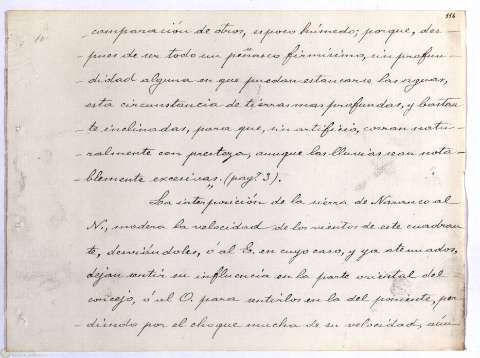 116
comparación de otros, es poco húmedo; porque, des-
pues de ser todo un peñasco firmísimo, sin profun-
didad alguna en que puedan estancarse las aguas,
esta circunstancia de tierras mas profundas, y bastan
te inclinadas, para que, sin artificio, corran natu-
ralmente con presteza, aunque las lluvias sean nota-
blemente excesivas." (pagª 3).
La interposición de la sierra de Naranco al
N., modera la velocidad de los vientos de este cuadran
te, desviándoles, ó al E. en cuyo caso, y ya atenuados,
dejan sentir su influencia en la parte oriental del
concejo, ó al O. para sentirlos en la del poniente, per-
diendo por el choque mucha de su velocidad; aún